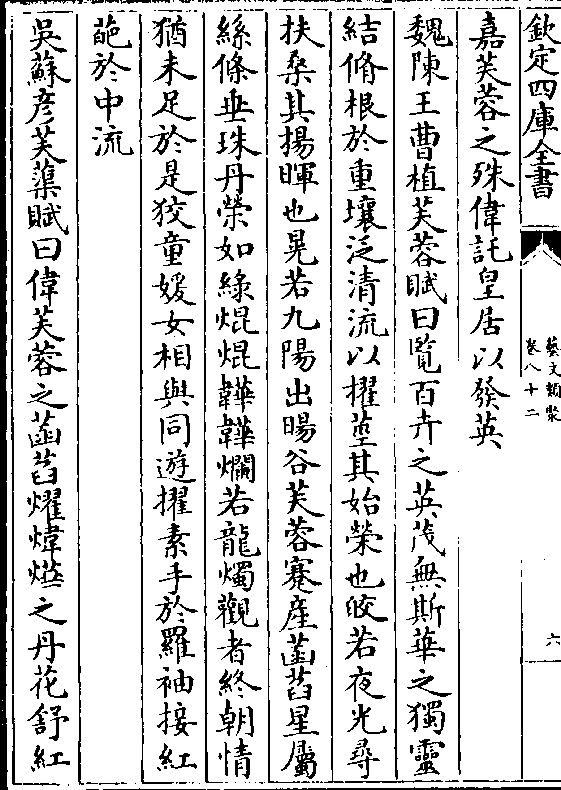 欽定四庫全書
藝文類聚
卷八十二
六
嘉芙蓉之殊偉託皇居以發英
魏陳王曹植芙蓉賦曰覽百卉之英茂無斯華之獨靈
結脩根於重壤泛清流以擢莖其始榮也皎若夜光尋
扶桑其揚暉也晃若九陽出暘谷芙蓉蹇産菡萏星屬
絲條垂珠丹榮如綠焜焜韡韡爛若龍燭觀者終朝情
猶未足於是狡童媛女相與同遊擢素手於羅袖接紅
葩於中流
吳蘇彦芙蕖賦曰偉芙蓉之菡萏燿煒燁之丹花舒紅